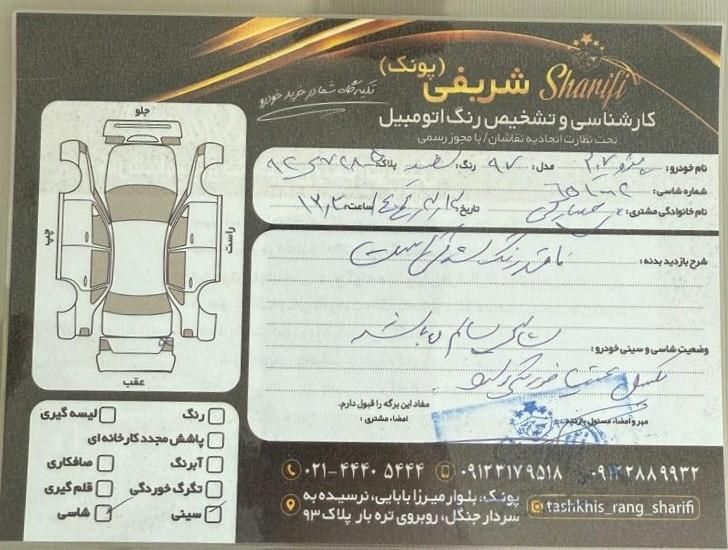 Sharifi شریفی (پونک)
تکیه گاه شما در خرید خودرو
کارشناسی و تشخیص رنگ اتومبیل
تحت نظارت اتحادیه نقاشان / با مجوز رسمی
نام خودرو: پژو ۲۰۷ مدل: ۹۷ رنگ: سفید پلاک:
شماره شاسی:
نام خانوادگی مشتری: تاریخ ساعت:
شرح بازدید بدنه: فاقد رنگ شدگی است
وضعیت شاسی و سینی خودرو: شاسی سالم می باشد
مهر و امضاء، مسئول بازدید:
مفاد این برگه را قبول دارم.
امضاء، مشتری:
جلو
چپ
راست
عقب
رنگ
لیسه گیری
پاشش مجدد کارخانه ای
آبرنگ
صافکاری
تگرگ خوردگی
قلم گیری
سینی
شاسی
۰۲۱-۴۴۴۰ ۵۴۴۴ ۰۹۱۲۳۱۷۹۵۱۸ ۰۹۱۲۲۸۸۹۹۳۲
پونک، بلوار میرزا بابایی، نرسیده به
سردار جنگل، روبروی تره بار پلاک ۹۳
tashkhis_rang_sharifi